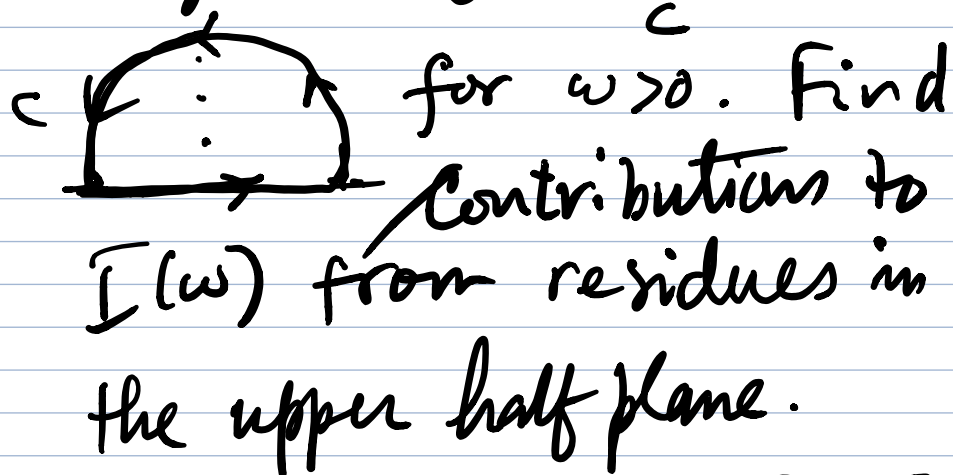 C
C for ω>0. Find
Contributions to
I(ω) from residues in
the upper half plane.